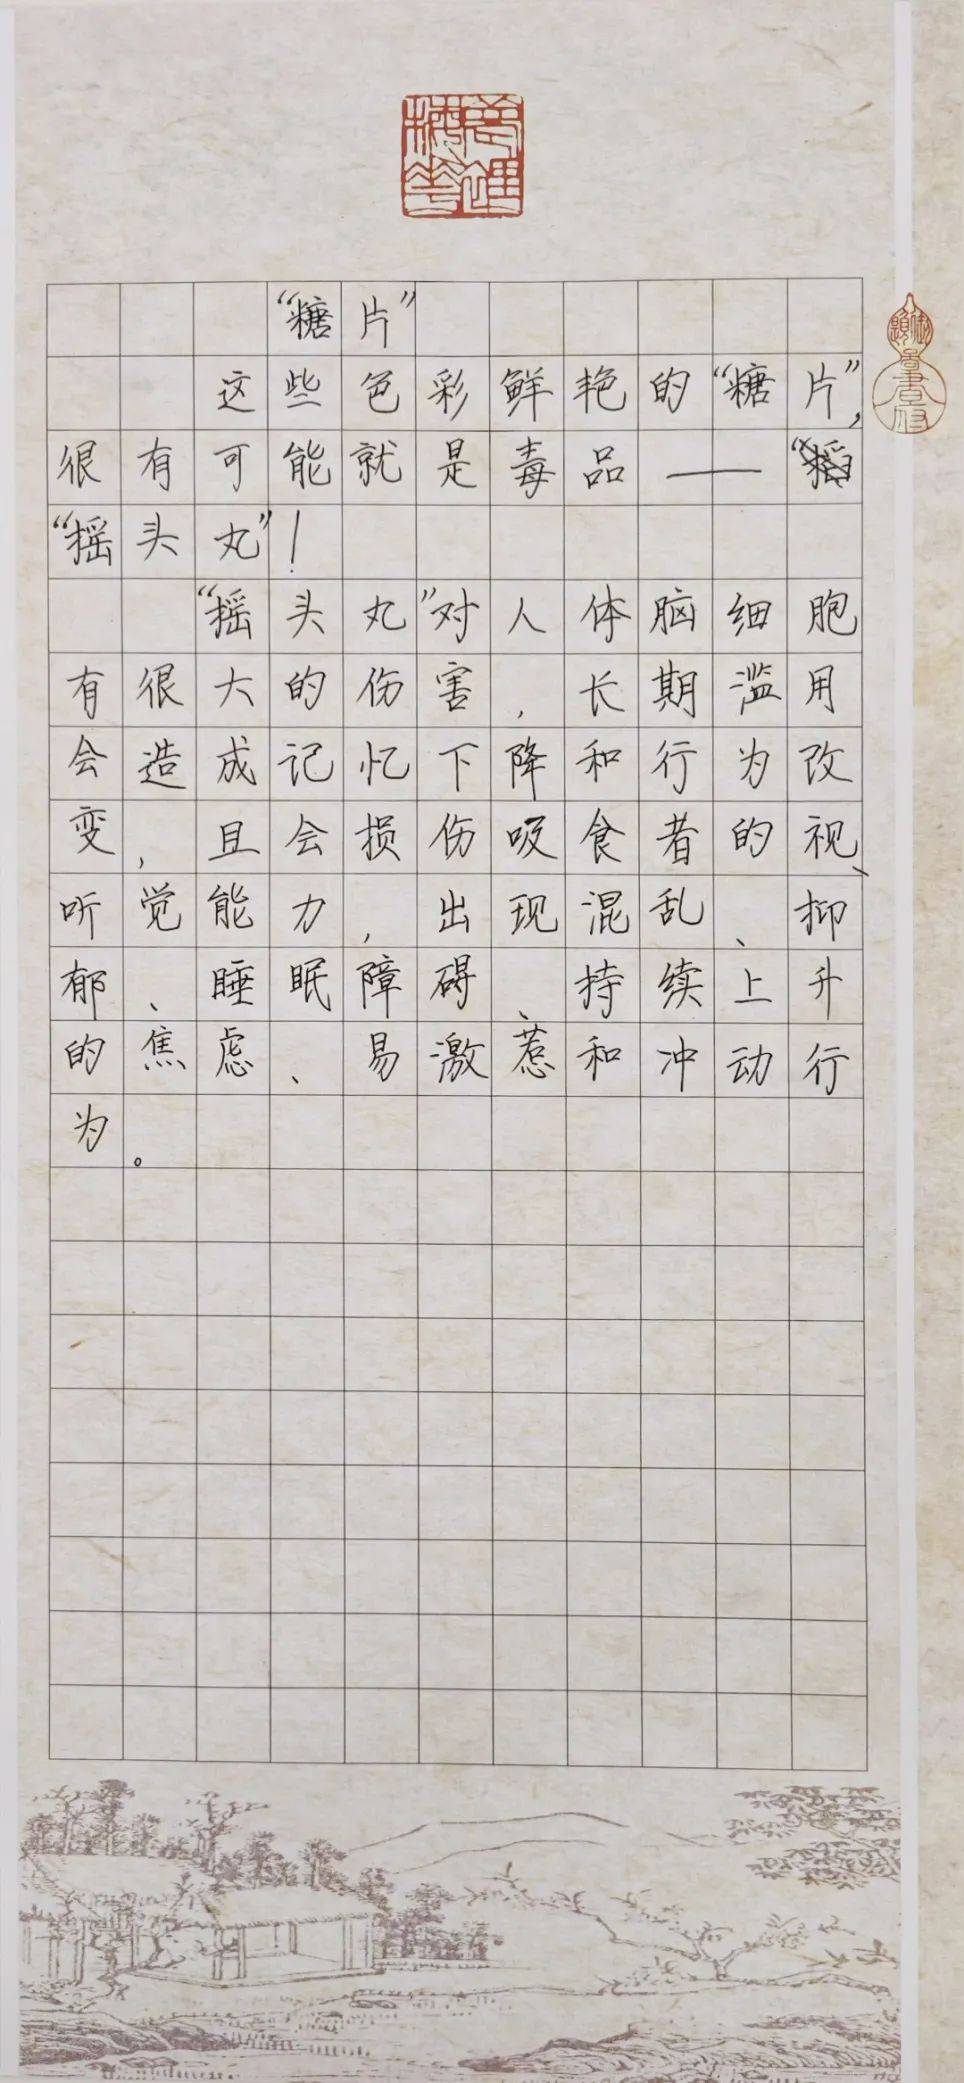 “糖片”
这些色彩鲜艳的“糖片”，
很有可能就是毒品——
“摇头丸”！
“摇头丸”对人体脑细胞
有很大的伤害，长期滥用
会造成记忆下降和行为改
变，且会损伤吸食者的视、
听觉能力，出现混乱、抑
郁、睡眠障碍、持续上升
的焦虑、易激惹和冲动行
为。